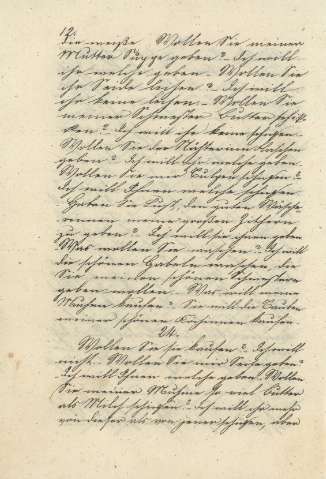 12.
die weiße. Wollen Sie meiner
Mutter Suppe geben? Ich will
ihr welche geben. Wollen Sie
ihr Seide leihen? Ich will
ihr keine leihen. Wollen Sie
meiner Schwester Butter schik-
ken? Ich will ihr keine schicken.
Wollen Sie der Nähterin
geben? Ich will ihr welche geben.
Wollen Sie mir schicken?
Ich will Ihnen welche schicken.
Haben Sie Lust, den guten
meinen großen
zu geben? Ich will sie ihnen geben.
Was wollen Sie? Ich will
die schönen Gabeln, die
Sie meinen schönen Schwestern
geben wollen. Was will meine
kaufen? Sie will die
meiner schönen kaufen.
24.
Wollen Sie sie kaufen? Ich will
nicht. Wollen Sie mir Seife geben?
Ich will Ihnen welche geben. Wollen
Sie meiner Muhme so viel Butter
als Milch schicken? Ich will ihr mehr
von dieser als von jener schicken, aber